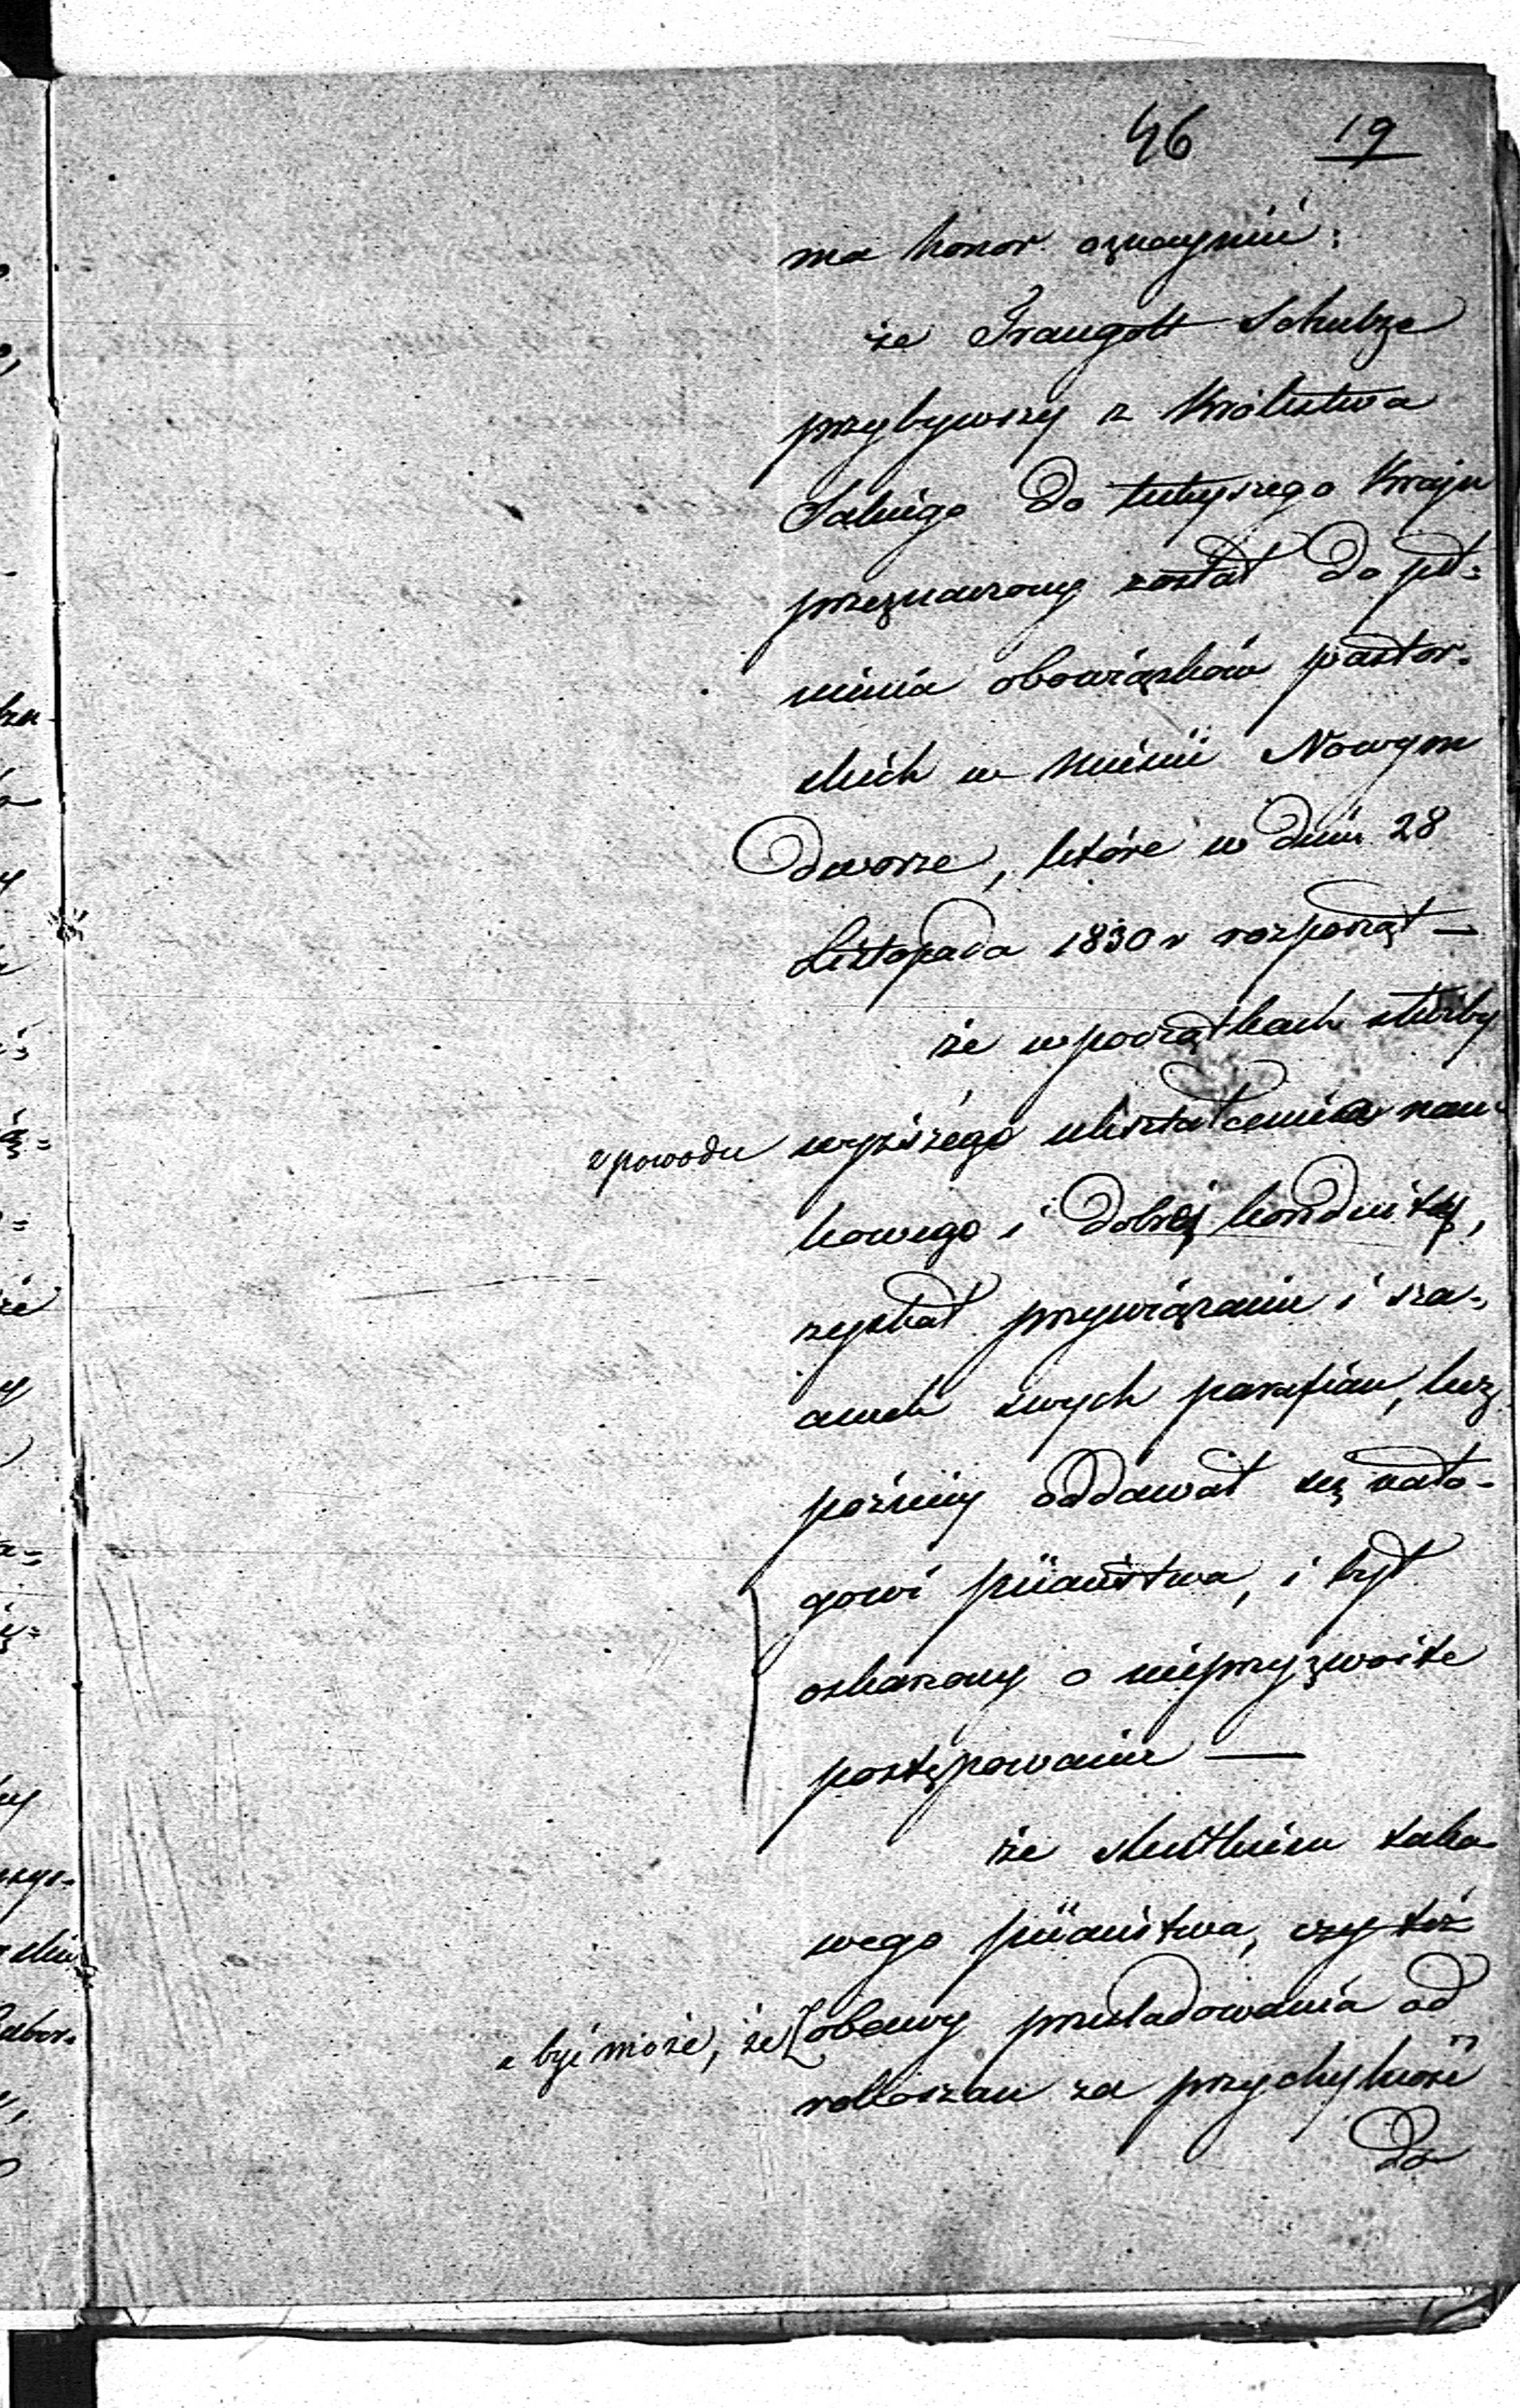 46 19
ma honor oznaymić:
że Traugott Schultze
przybywszy z Królestwa
Saskiego do tuteyszego Kraju
przeznaczony został do peł=
nienia obowiązków pastor=
skich w mieście Nowym
Dworze, które w dniu 28
Listopada 1830 r rozpoczął —
że w początkach służby
z powodu wyższego ukształcenia nau=
kowego i dobréj konduity,
zyskał przywiązanie i sza=
cunek swych parafian, lecz
późniey oddawał się nało=
gowi piiaństwa, i był
oskarżony o nieprzyzwoite
postępowanie —
że skutkiem tako
wego piiaństwa, czy też
a być może, że z obawy prześladowania od
rokoszan za przychylność
do